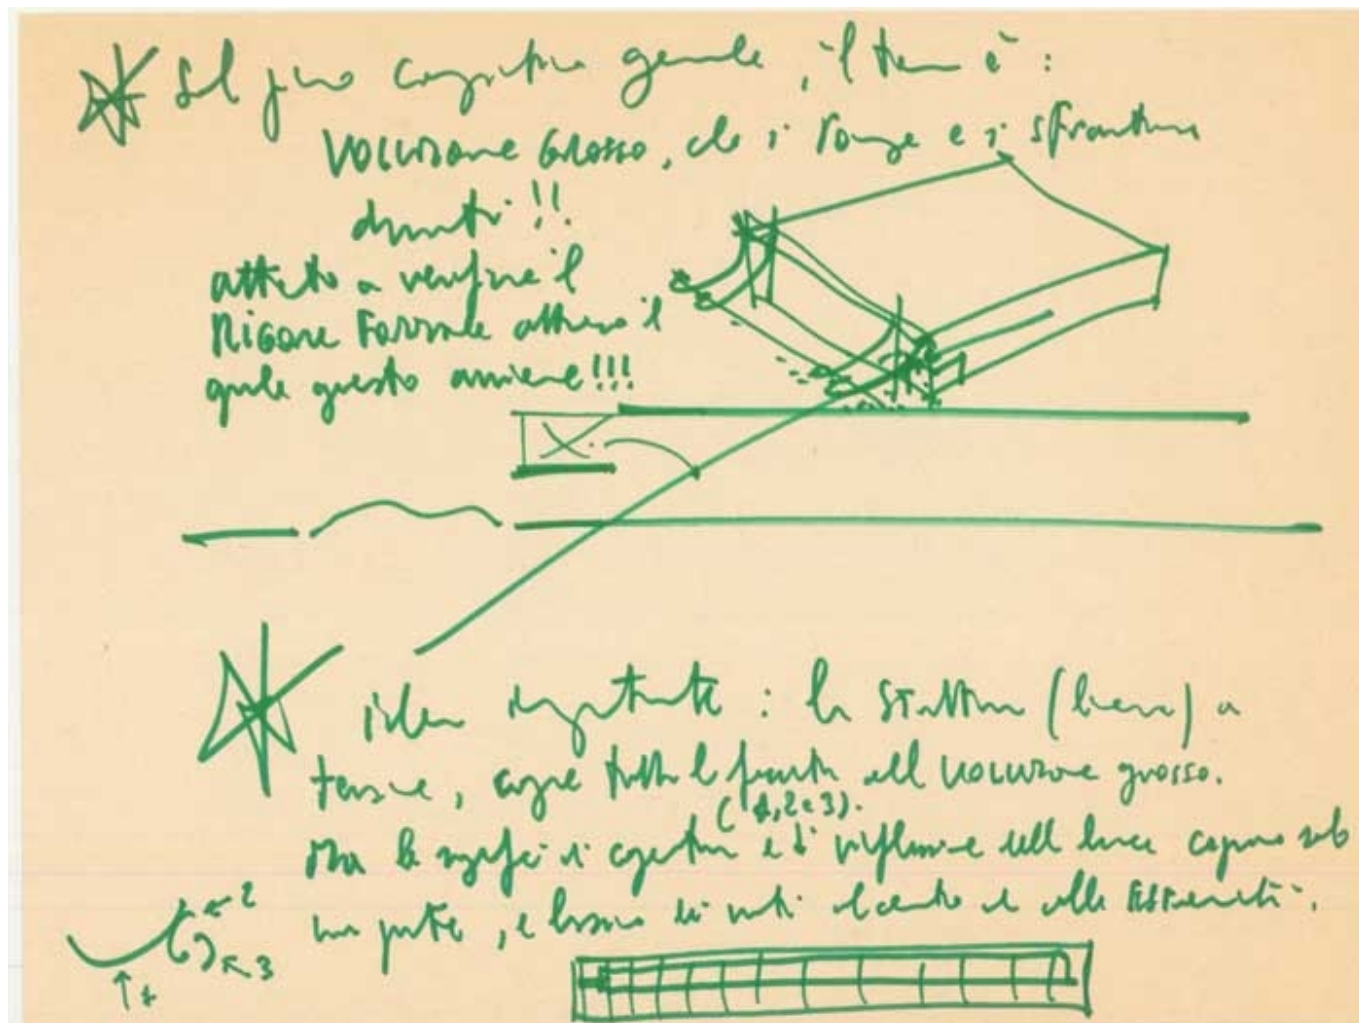 Sul piano compositivo generale, il tema è:
VOLUMONE GROSSO, che si rompe e si sfrantuma
davanti!!
attento a verificare il
RIGORE FORMALE attraverso il
quale questo avviene!!!
idea importante: la struttura (lieve) a
tensione, copre tutto il fronte del VOLUMONE grosso.
(1, 2 e 3).
Ma le superfici di copertura e di riflessione della luce coprono solo
una parte, e lasciano dei vuoti al centro e alle ESTREMITÀ.
2
3
1